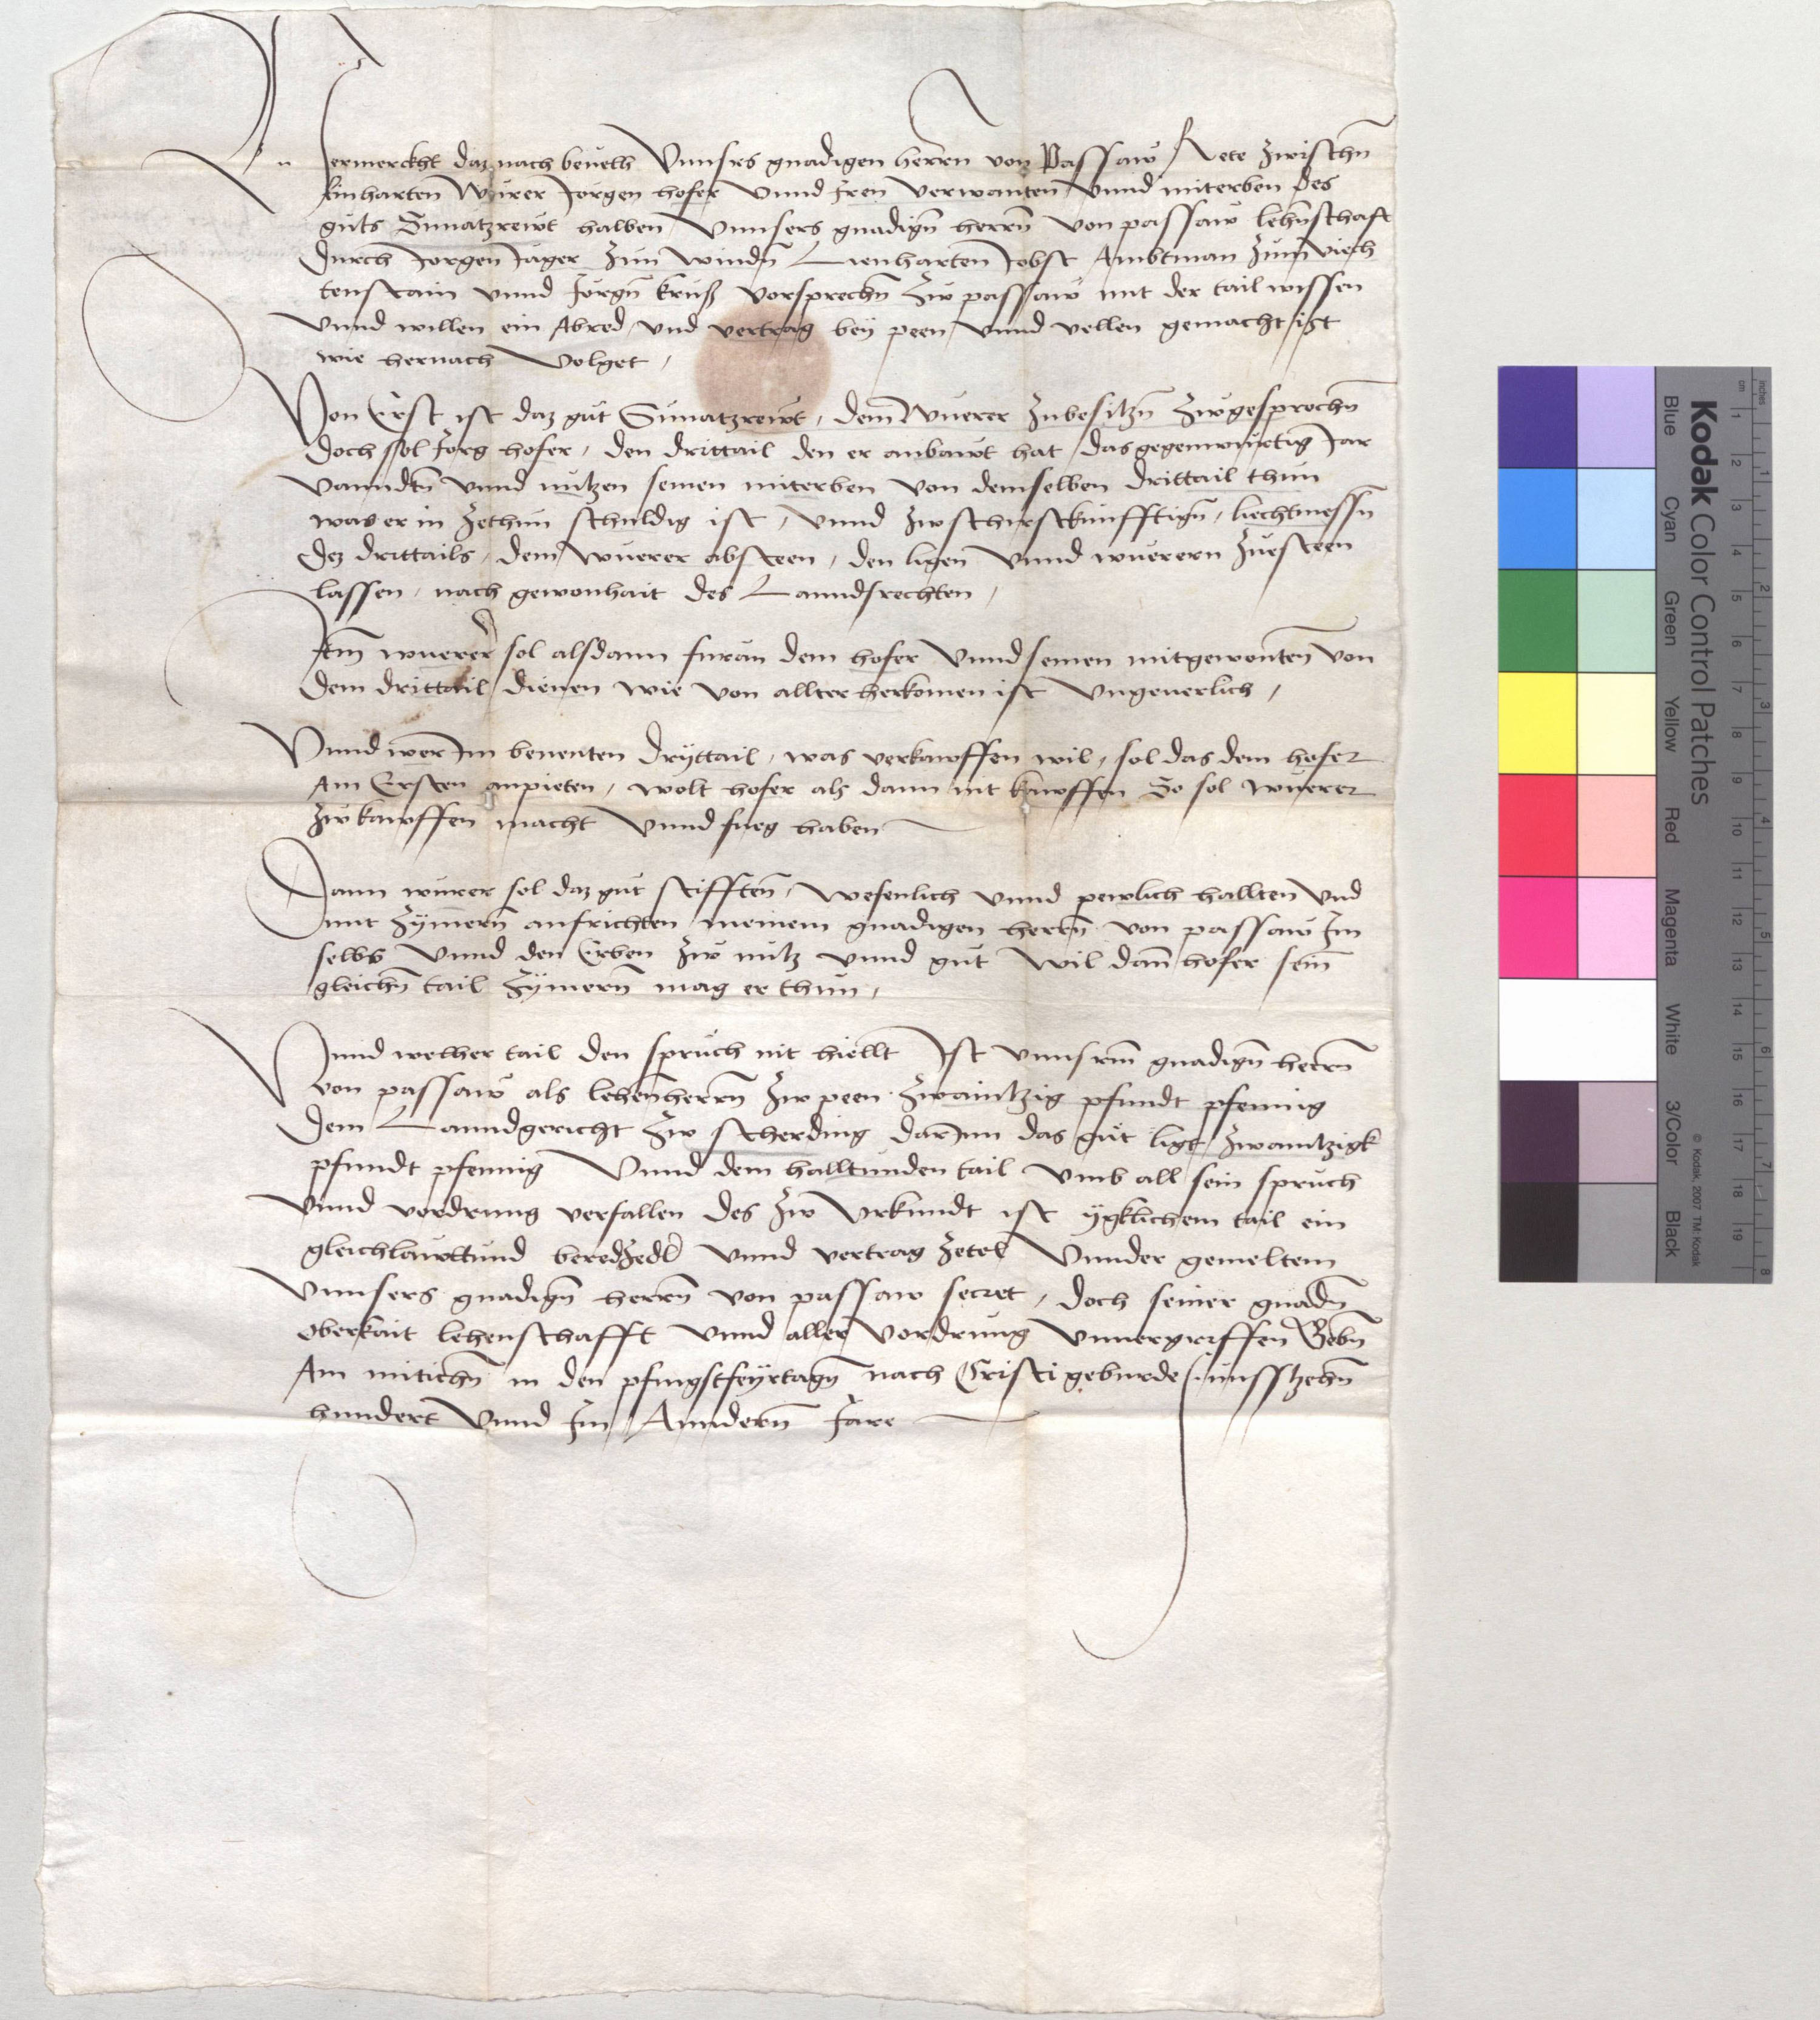 Vermerckht daz nach bevelh Vnnsrs gnadigen herren von Passaw Rete zwischn
linharten Wurer Jorgen hofer Vnnd Jren verwanten Vnnd miterben des
guts Sunatzrewt halben Vnnsers gnadign herrn von passaw lehnschaft
durch Jorgen Jager zun windn Lienharten Jobst Ambtman zum viech
tenstain vnnd Jorgn kruß vorsprechn zw passaw mit der tail wissen
Vnnd willen ein Abred vnd vertrag bey peen vnnd vellen gemacht ist
wie hernach Volget,
Von Erst ist daz gut Sunatzrewt, dem Wuerer zubesitzn zwgesprochn
doch sol Jorg hofer, den drittail den er anbawt hat das gegenwurtig Jar
vanndtn vnnd nutzen seinen miterben von demselben drittail thun
was er in zethun schuldig ist, Vnnd zw schirstkunfftign, liechtmessn
dez drittails, dem wuerer absteen, den ligen Vnnd wuerern zuesteen
lassen, nach gewonhait des Lanndsrechten,
Item wuerer sol alsdann furan dem hofer Vnnd seinen mitgewonten von
dem drittail dienen wie von allter herkomen ist Vngeuerlich,
Vnnd wer Jm benenten dryttail, was verkawffen wil, sol das dem hofer
Am Ersten anpieten, wolt hofer als dann nit kawffen So sol wuerer
zw kawffen macht Vnnd fueg haben
Dann wurer sol daz gut stifften, wesenlich vnnd pewlich hallten vnd
mit zymern aufrichten meinem gnadigen herrn von passaw Jm
selbs Vnnd den Erben zw nutz vnnd gut Wil dann hofer sein
gleichn tail zymern mag er thun,
Vnnd welher tail den spruch nit hiellt Jst vnnserm gnadign herrn
von passaw als lehenherrn zw peen zwaintzig pfundt pfennig
dem Lanndgericht zw scherding darJnn das gut ligt zwaintzigk
pfundt pfennig Vnnd dem halltunden tail vmb all sein spruch
Vnnd vordrung verfallen des zw Vrkundt ist ygklichem tail ein
gleichlawttund beredzedl vnnd vertrag zetel Vnnder gemeltem
Vnnsers gnadign herrn von passaw secret, doch seiner gnadn
oberkait lehenschafft Vnnd aller Vordrung Vnuergriffen Gebn
Am mitichn in den pfingstfeyrtagn nach Cristi geburde funfftzehn
hundert Vnnd Jm Anndern Jare
Kodak Color Control Patches
Blue Cyan Green Yellow Red Magenta White 3/Color Black
© Kodak, 2007 TM: Kodak
inches 1 2 3 4 5 6 7 8
cm 1 2 3 4 5 6 7 8 9 10 11 12 13 14 15 16 17 18 19